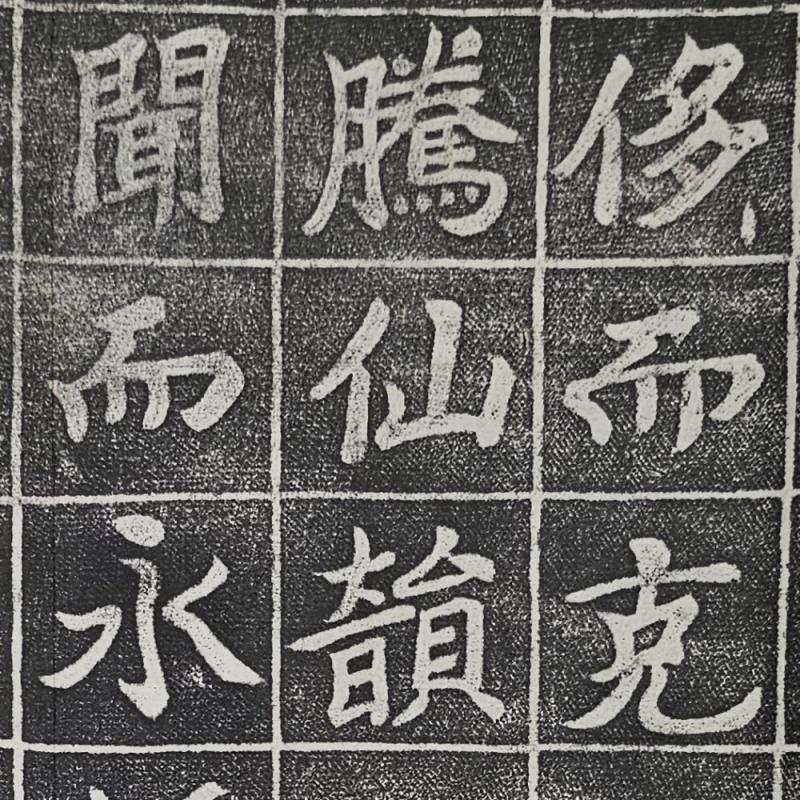 侈而克
騰仙韻
聞而永